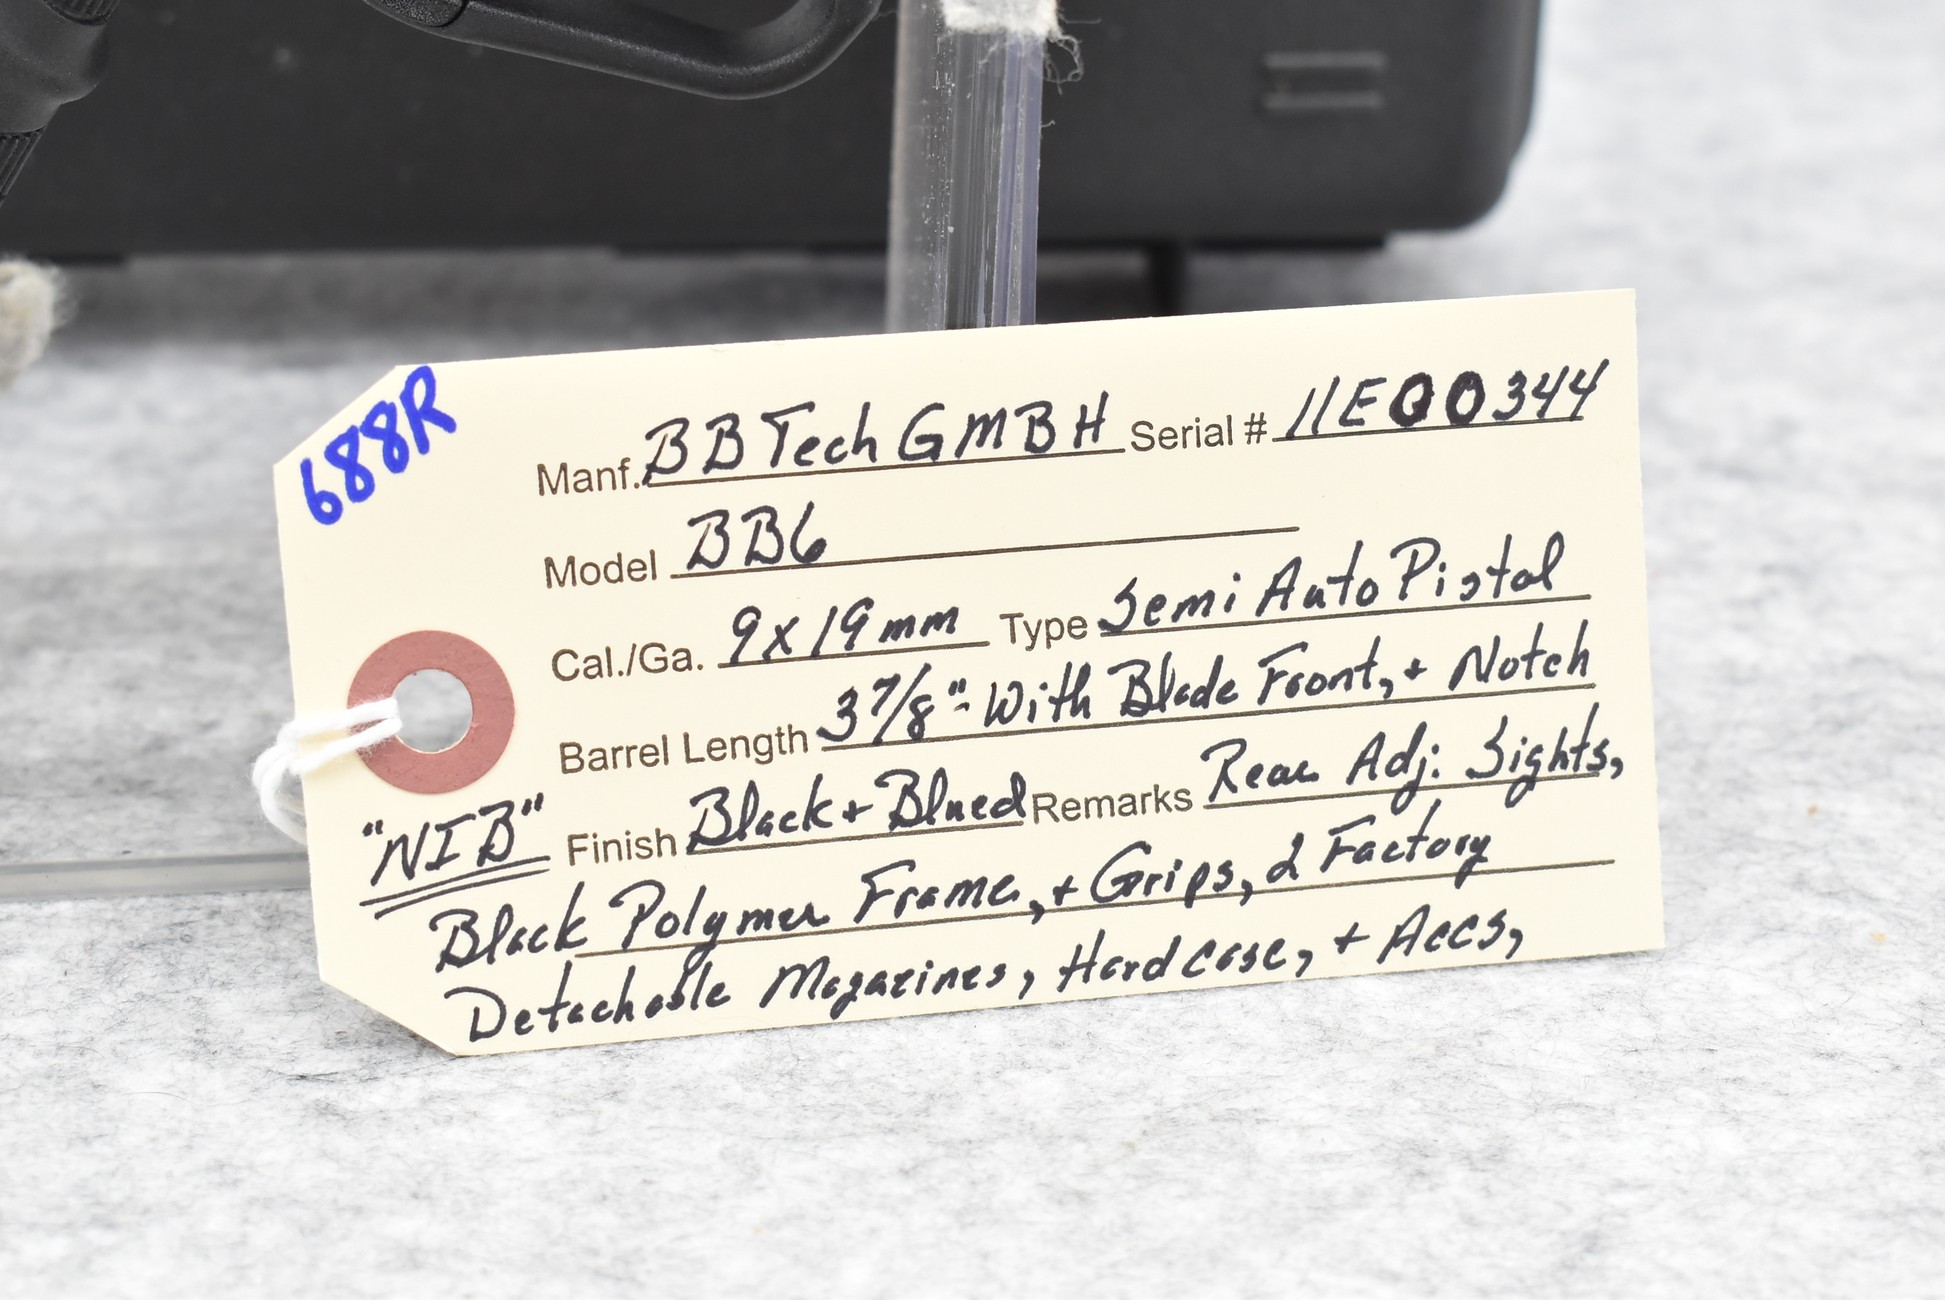 688R
Manf. BB Tech GMBH Serial # 11E00344
Model BB6
Cal./Ga. 9x19mm Type Semi Auto Pistol
Barrel Length 3 7/8"- With Blade Front, + Notch
"NIB" Finish Black + Blued Remarks Rear Adj. Sights,
Black Polymer Frame, + Grips, 2 Factory
Detachable Magazines, Hard case, + Accs,